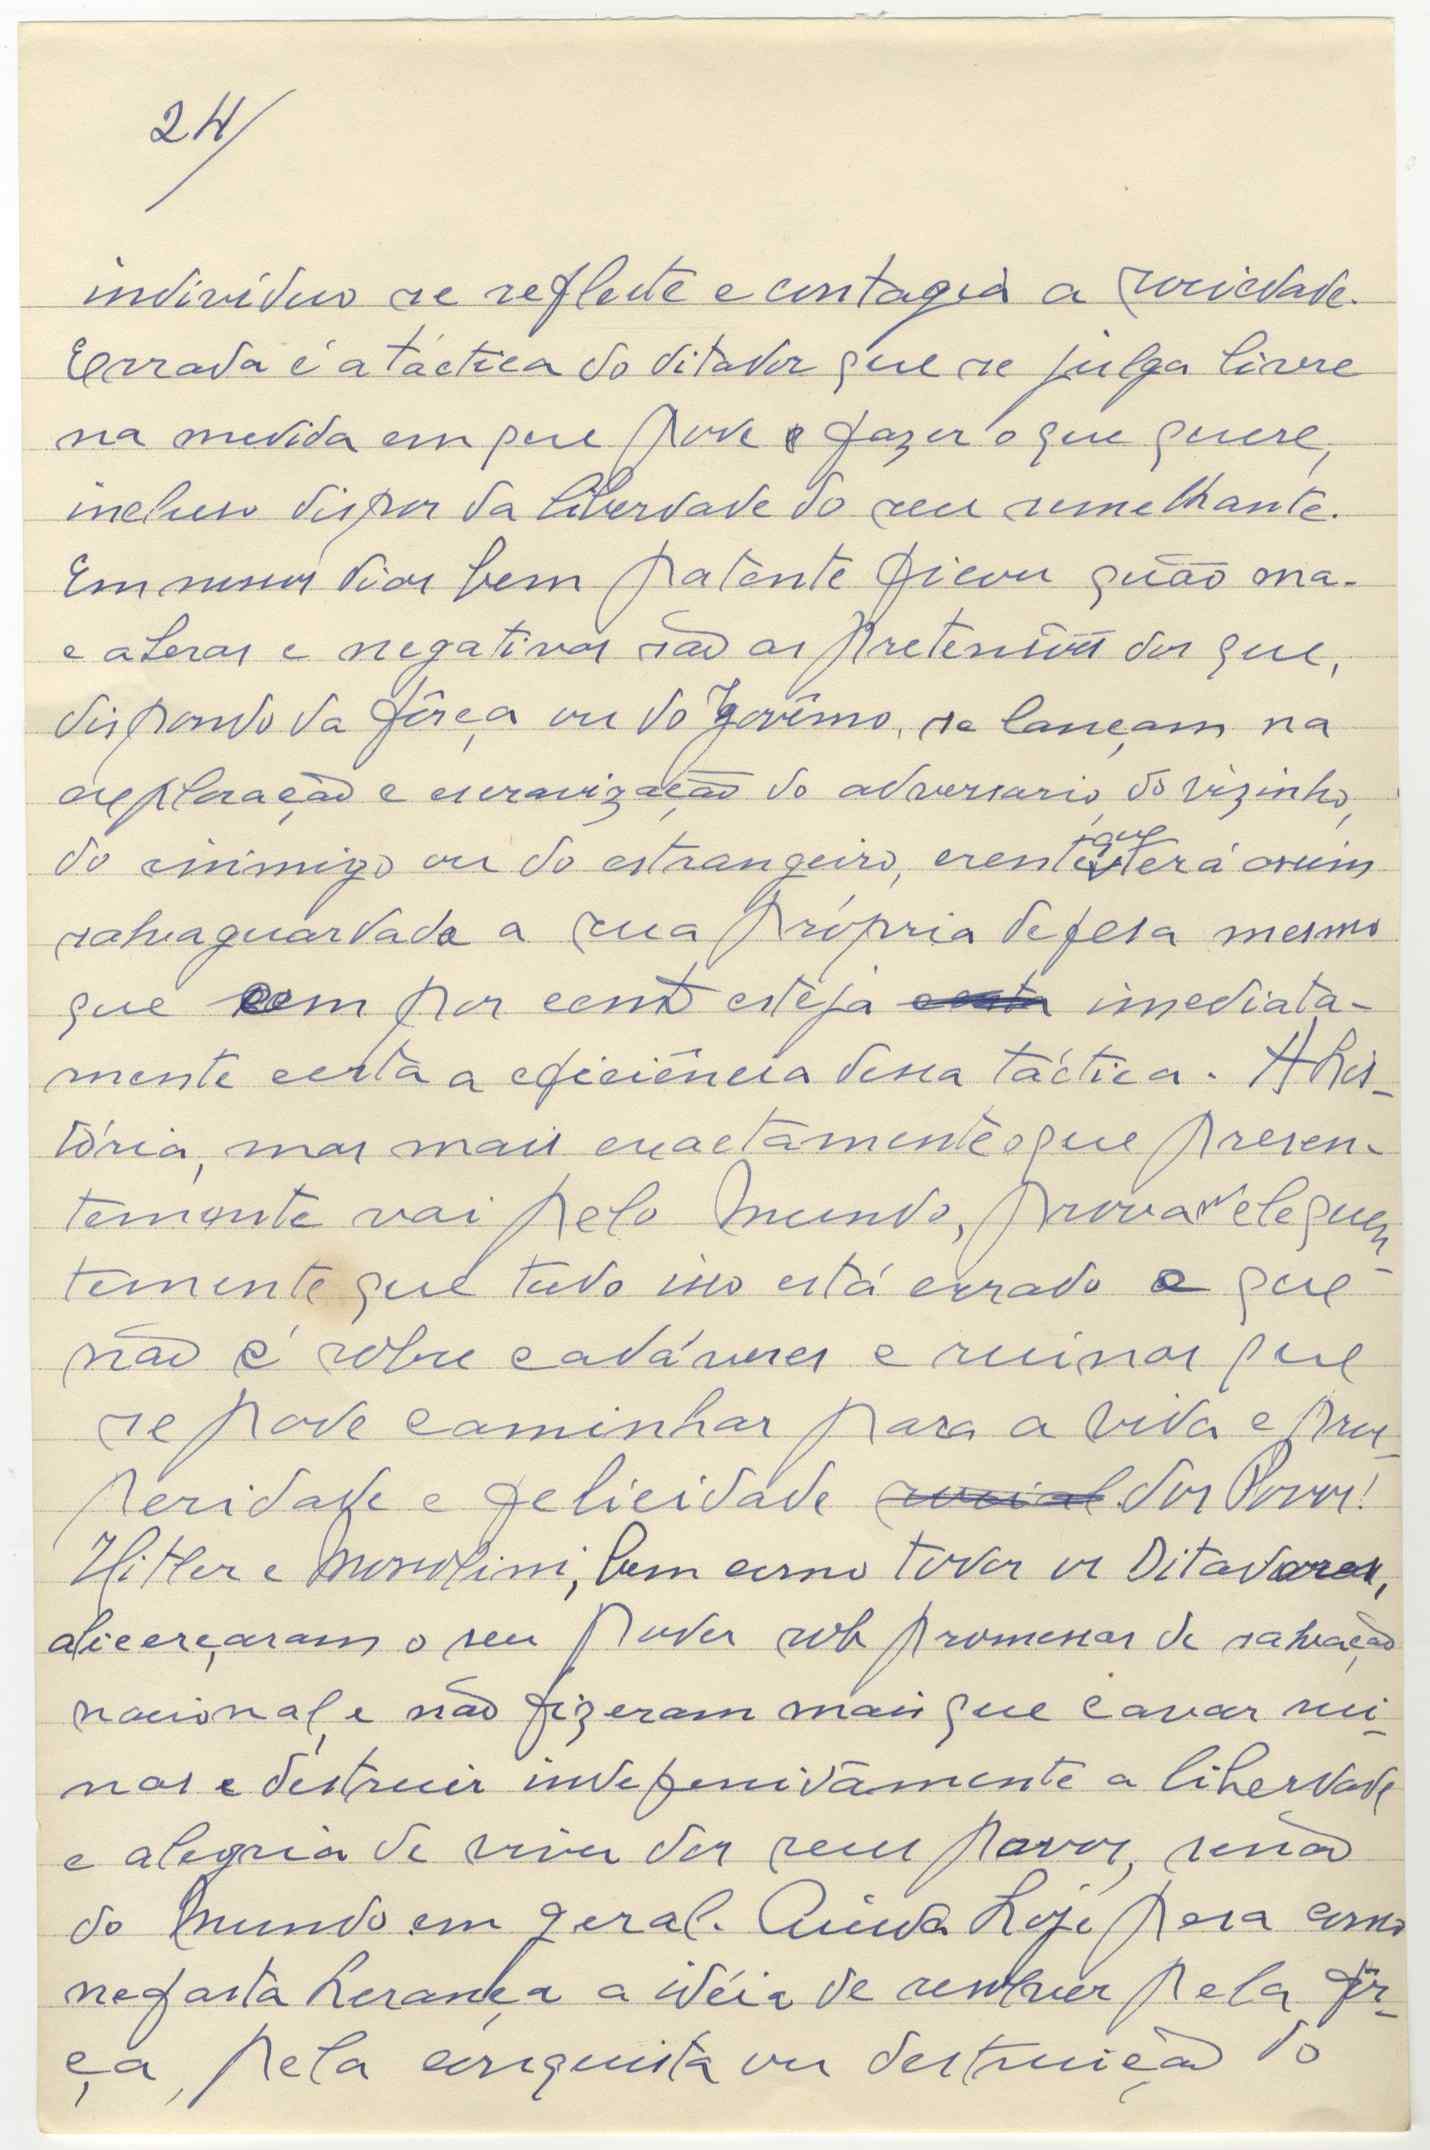 24/
indivíduo se reflecte e contagia a sociedade.
Errada é a táctica do ditador que se julga livre
na medida em que pode fazer o que quere,
incluso dispor da liberdade do seu semelhante.
Em nossos dias bem patente ficou quão ma-
cabras e negativas são as pretensões dos que,
dispondo da fôrça ou do Govêrno, se lançam na
exploração e escravização do adversario, do vizinho,
do inimigo ou do estrangeiro, crente que terá assim
salvaguardada a sua própria defesa mesmo
que cem por cento esteja certa imediata-
mente certa a eficiência dessa táctica. A his-
tória, mas mais exactamente o que presen-
temente vai pelo Mundo, prova eloquen-
temente que tudo isso está errado e que
não é sobre cadáveres e ruinas que
se pode caminhar para a vida e pros-
peridade e felicidade social dos Povos!
Hitler e Mussolini, bem como todos os Ditadores,
alicerçaram o seu poder sob promessas de salvação
nacional, e não fizeram mais que cavar rui-
nas e destruir indefenidamente a liberdade
e alegria de viver dos seus povos, senão
do Mundo em geral. Ainda hoje pesa como
nefasta herança a idéia de resolver pela fôr-
ça, pela conquista ou destruição do